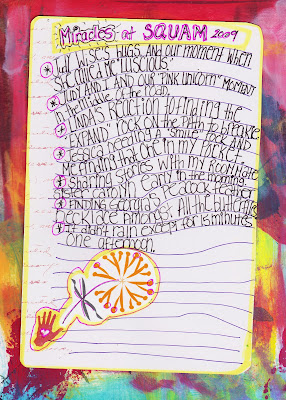 Miracles at SQUAM 2009
Judy WISE'S HUGS and our moment when
She called me "LUSCIOUS"
JUDY AND I AND OUR "PINK UNICORN" MOMENT
in the middle of the road.
LINDA'S REACTION to finding the
EXPAND rock on the path to
Jessica needing a "smile" rock AND
me finding that one in my pocket.
Sharing stories with my roommate
Carolyn early in the morning
FINDING GEORGIA'S Peacock feather
necklace amongst All the butterflies
It didnt rain except for 15 minutes
one afternoon.